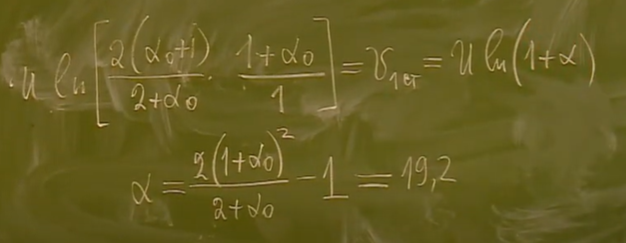 u ln[2(α₀+1)/(2+α₀) · (1+α₀)/1] = v₁ст = u ln(1+α)
α = 2(1+α₀)²/(2+α₀) - 1 = 19,2